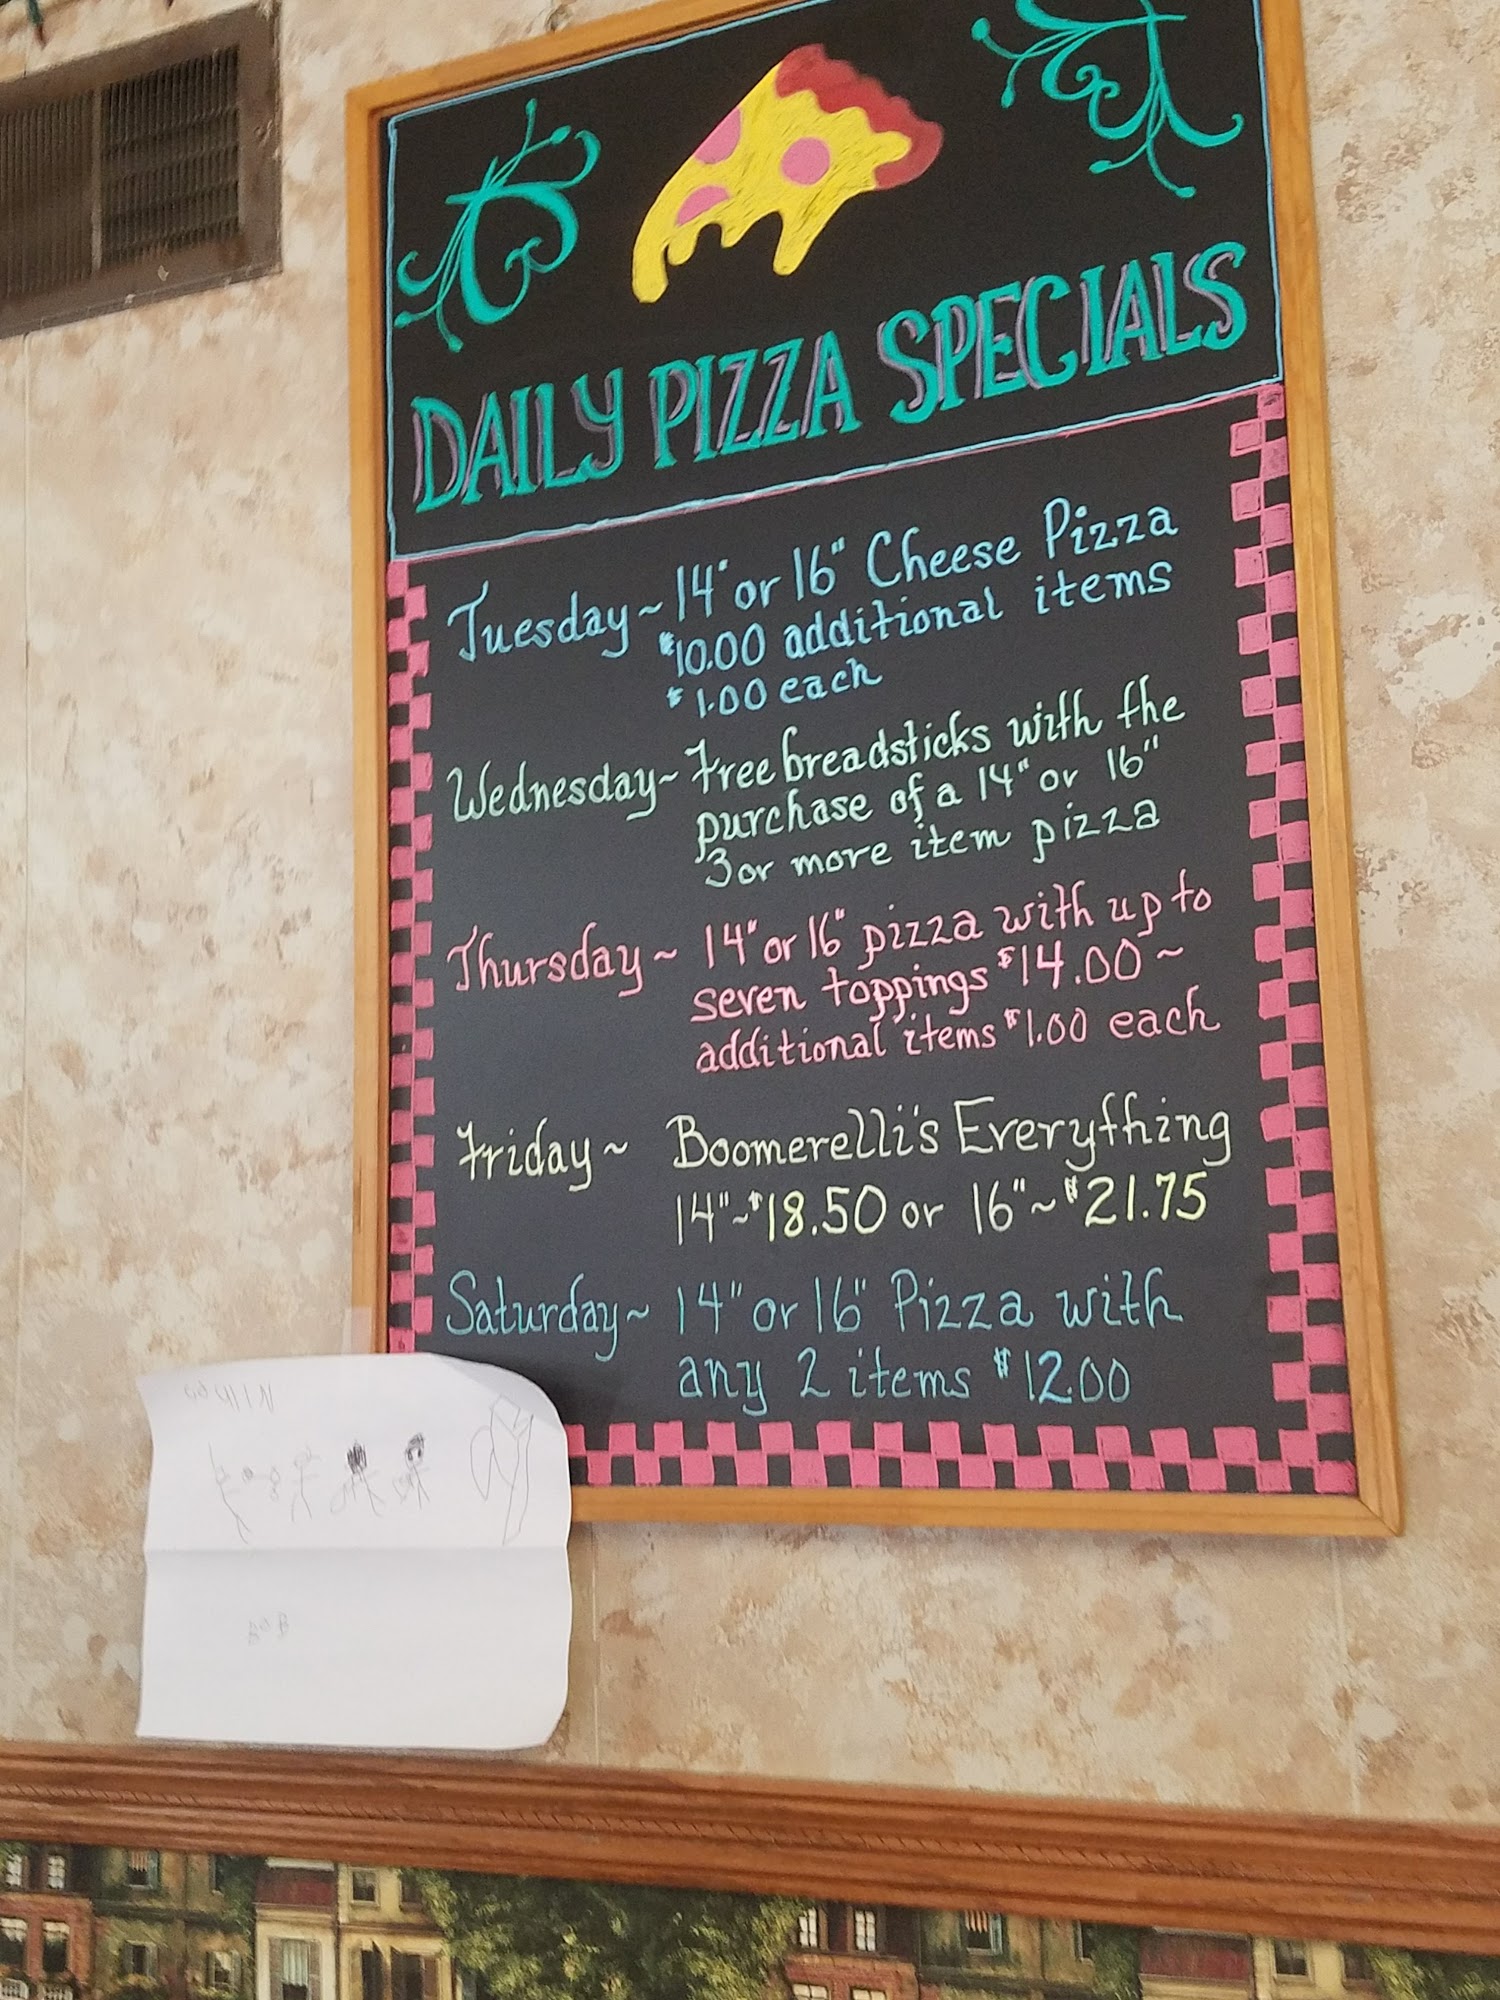 DAILY PIZZA SPECIALS
Tuesday~ 14" or 16" Cheese Pizza
$10.00 additional items
$1.00 each
Wednesday~ Free breadsticks with the
purchase of a 14" or 16"
3 or more item pizza
Thursday~ 14" or 16" pizza with up to
seven toppings $14.00~
additional items $1.00 each
Friday~ Boomerelli's Everything
14"~$18.50 or 16"~$21.75
Saturday~ 14" or 16" Pizza with
any 2 items $12.00
BOB